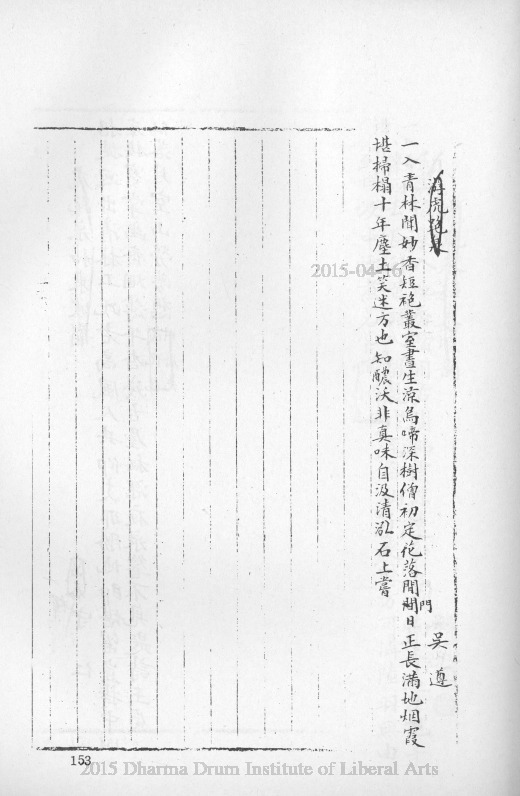 游虎跑泉
吳遵
一入青林聞妙香短袍叢室晝生涼鳥啼深樹僧初定花落閒門日正長滿地烟霞
堪掃榻十年塵土笑迷方也知醲沃非真味自汲清泓石上嘗
153
2015-04-16
2015 Dharma Drum Institute of Liberal Arts